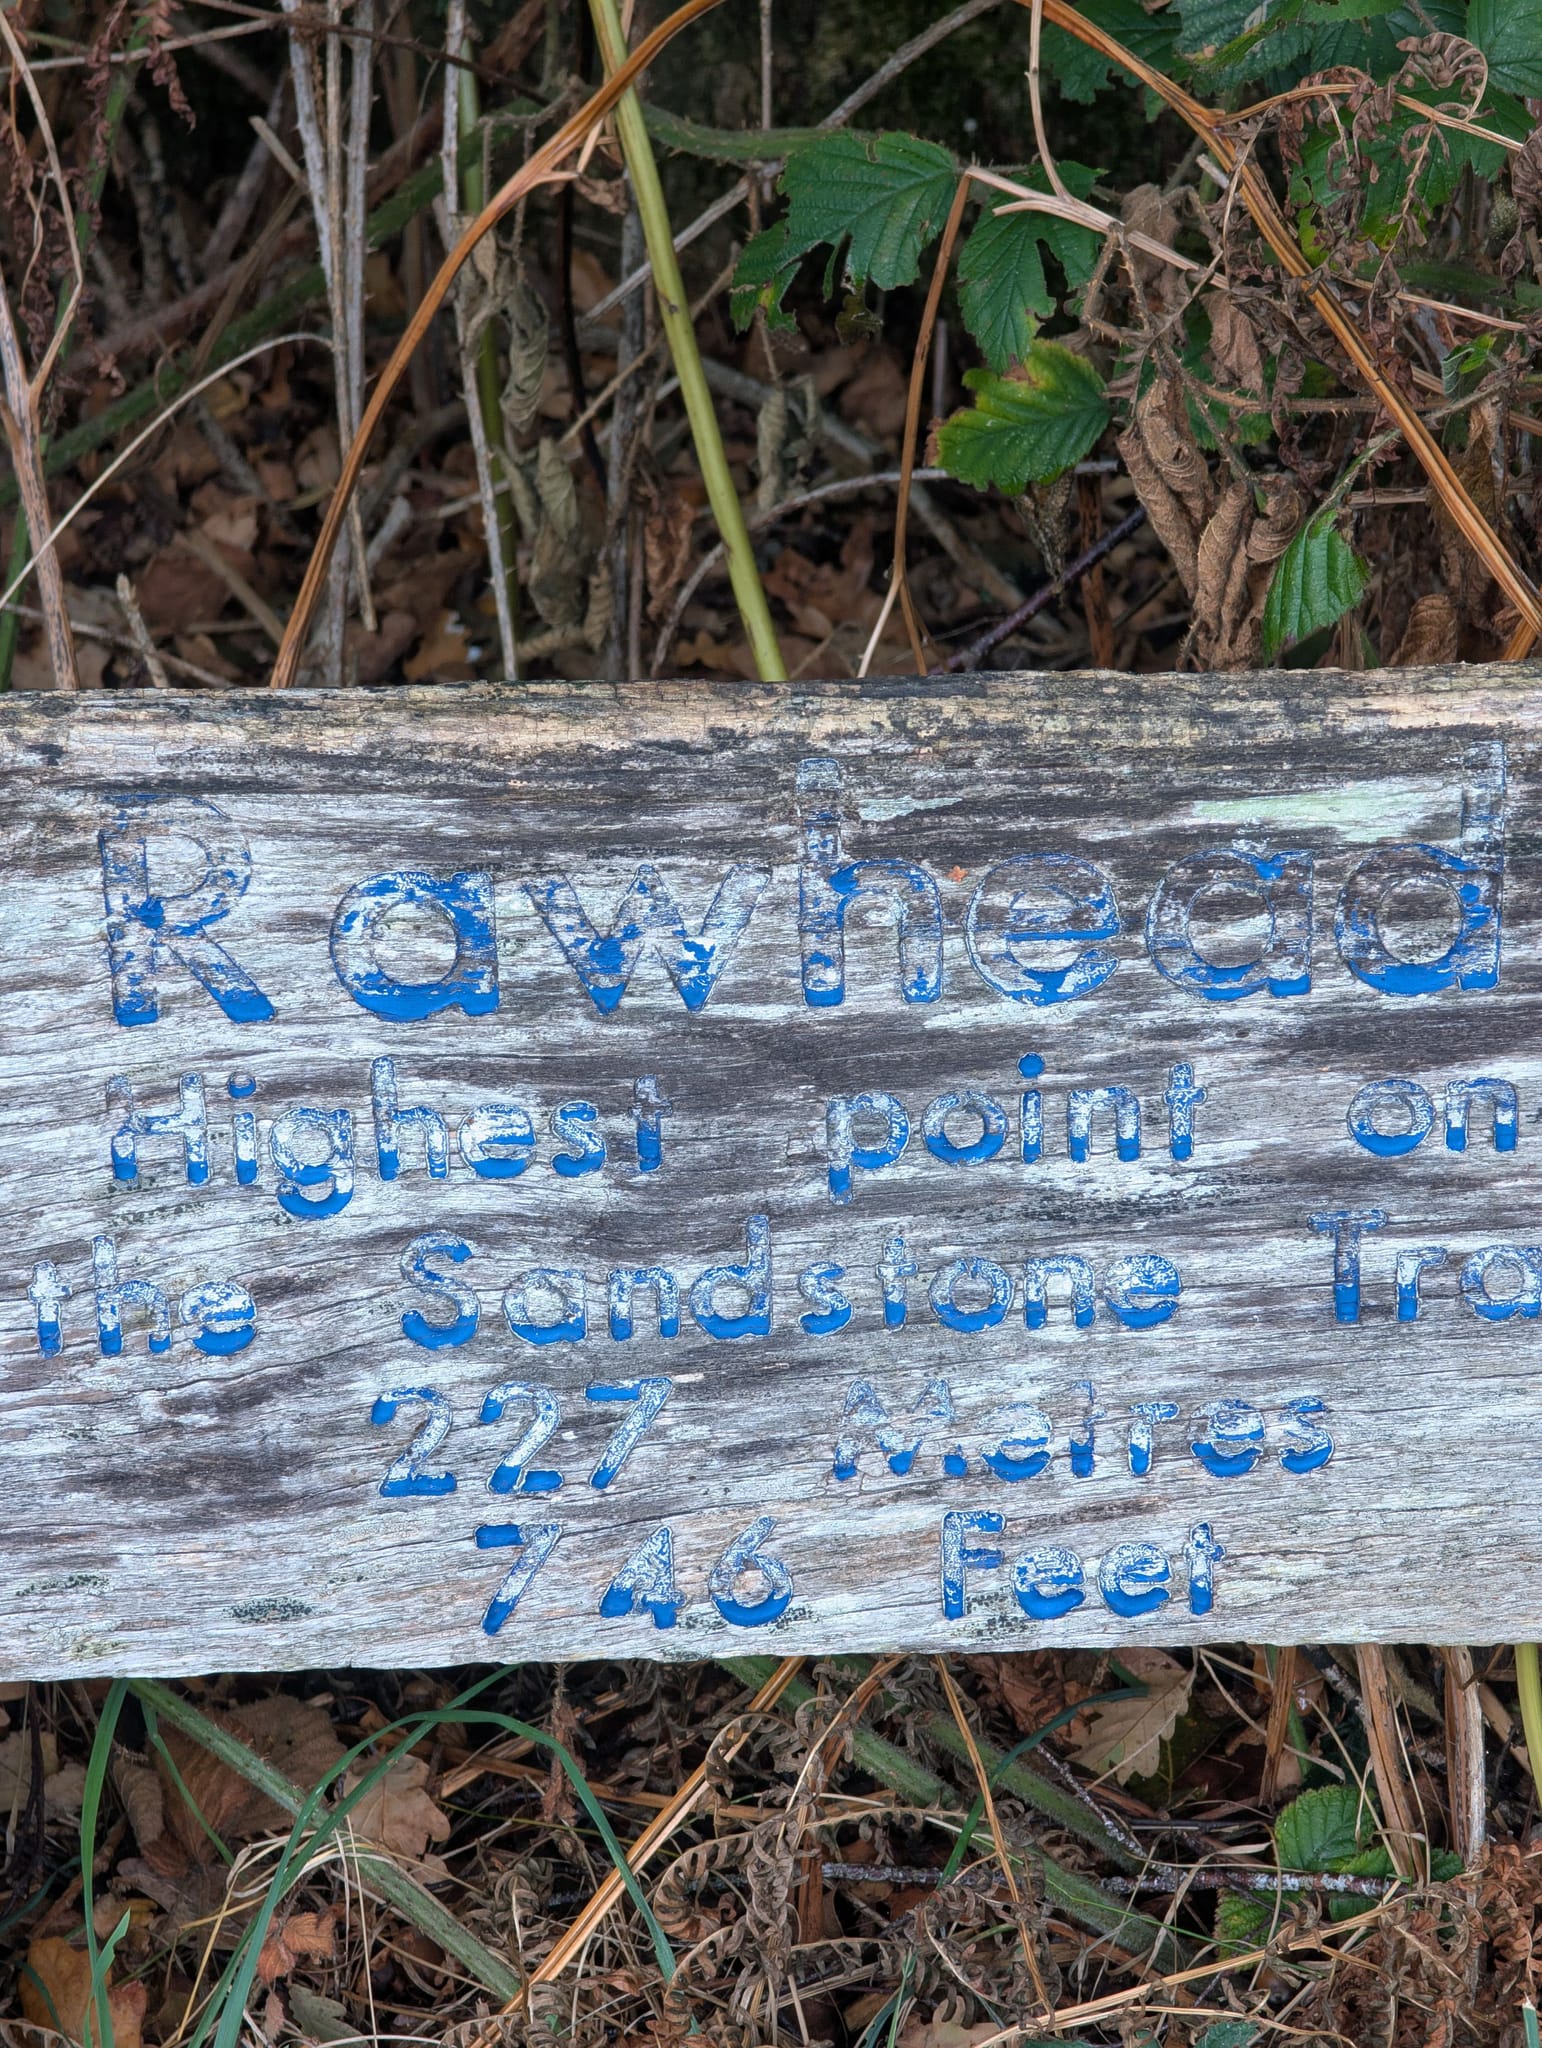 Rawhead
Highest point on
the Sandstone Tra
227 Metres
746 Feet